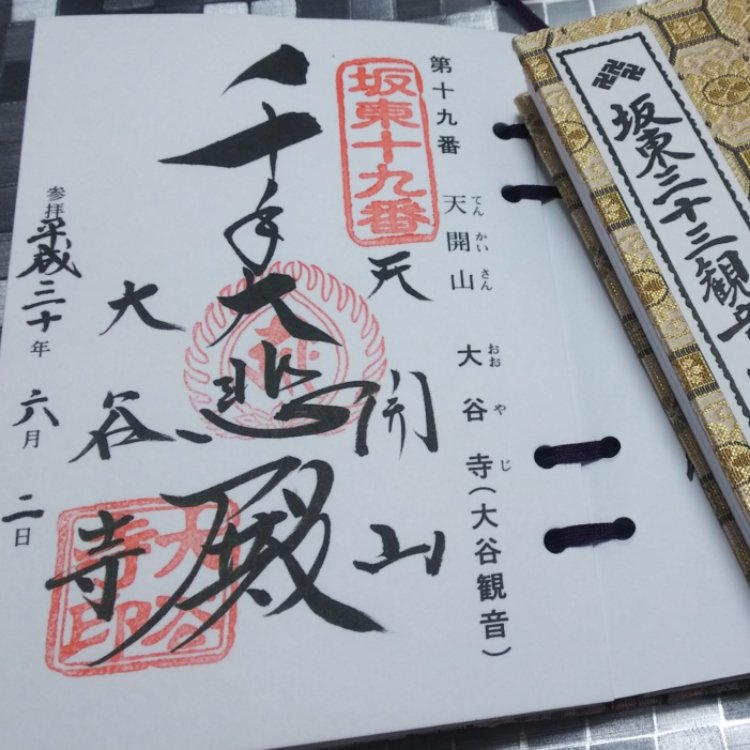 坂東三十三観音
第十九番
てん かい さん おお や じ
天開山 大谷寺(大谷観音)
坂東十九番
天開山
千手大悲殿
大谷寺
大谷寺印
参拝平成三十年六月二日